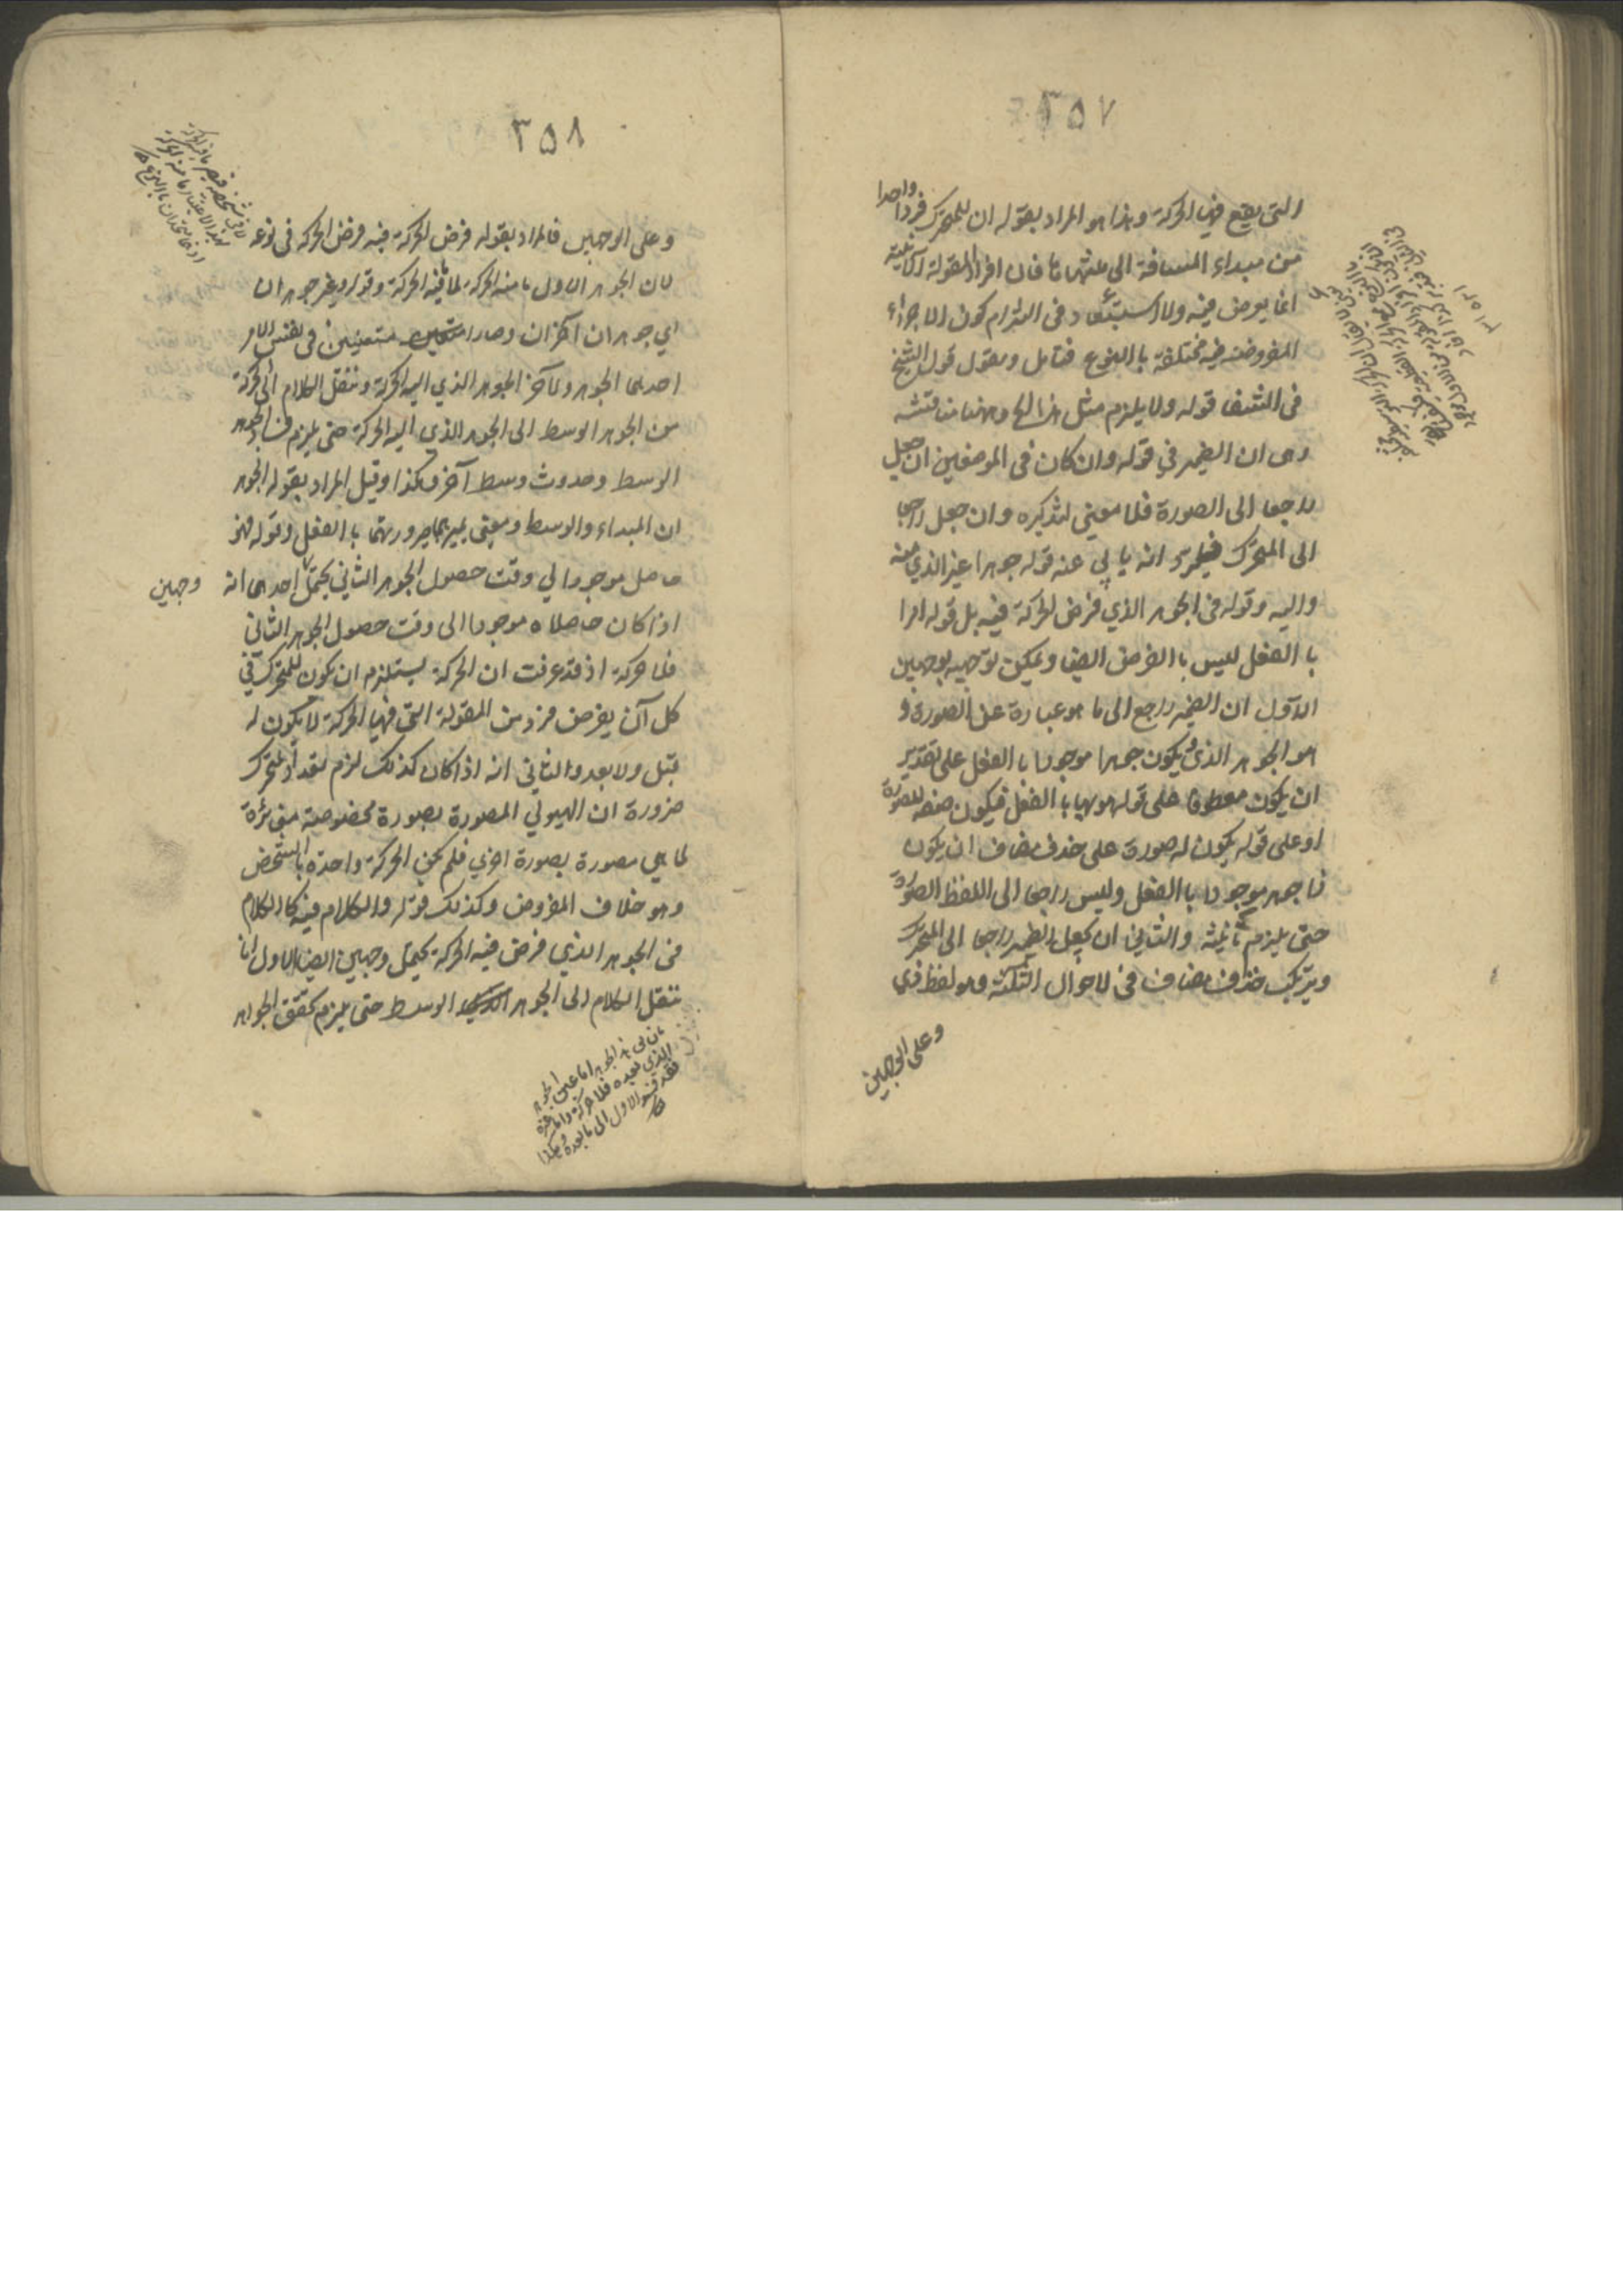 ٣٥٧
التى يقع فيها الحركة وهذا هو المراد بقوله ان للمتحرك فردا واحدا
من مبداء المسافة الى منتهاها فان افراد المقولة الآنية
انما يعرض فيه ولا استبعاد فى التزام كون الاجزاء
المفروضة فيه مختلفة باالنوع فتامل ونقول قول الشيخ
فى الشفا قوله ولا يلزم مثل هذا الخ وههنا مناقشه
وهى ان الضمير في قوله وان كان فى الموضعين ان جعل
راجعا الى الصورة فلا معنى لتذكيره وان جعل راجعا
الى المتحرك فيلزم انه يابي عنه قوله جوهرا غير الذي منه
واليه وقوله فى الجوهر الذي فرض الحركة فيه بل قوله امرا
باالفعل ليس باالفرض ايضا ويمكن توجيهه بوجهين
الاول ان الضمير راجع الى ما هو عبارة عن الصورة و
هو الجوهر الذى يكون جوهرا موجودا باالفعل على تقدير
ان يكون معطوفا على قوله هو بها باالفعل فيكون صفة للصورة
او على قوله يكون له صورة على حذف مضاف ان يكون
ذا جوهر موجودا باالفعل وليس راجعا الى اللفظ الصورة
حتى يلزم تأنيثه والثاني ان يجعل الضمير راجعا الى المتحرك
ويرتكب حذف مضاف فى لاحوال الثلثة وهو لفظ ذي
وعلى الوجهين
٣٥٨
وعلى الوجهين فالمراد بقوله فرض الحركة فيه فرض الحركة فى نوعه
لان الجوهر الاول ما منه الحركة لا ما فيه الحركة وقوله وغير جوهران
اي جوهران آخران وصارا متعينين فى نفس الامر
احدهما الجوهر ولآخر الجوهر الذي اليه الحركة وننقل الكلام الى حركة
من الجوهر الوسط الى الجوهر الذي اليه الحركة حتى يلزم فساد الجوهر
الوسط وحدوث وسط آخر وهكذا وقيل المراد بقوله الجوهر
ان المبداء والوسط ومعنى تميزهما صرورتهما باالفعل وقوله فهو
حاصل موجودا لي وقت حصول الجوهر الثاني يحتمل احدهما انه
وجهين
اذا كان حاصلا ه موجودا الى وقت حصول الجوهر الثاني
فلا حركة اذ قد عرفت ان الحركة يستلزم ان يكون للمتحرك في
كل آن يفرض فرد من المقولة التى فيها الحركة لا يكون له
قبل ولا بعد والثاني انه اذا كان كذلك لزم تعدد المتحرك
ضرورة ان الهيولي المصورة بصورة مخصوصة مغائرة
لما هي مصورة بصورة اخري فلم يكن الحركة واحدة باالشخص
وهو خلاف المفروض وكذلك قوله والكلام فيه كاالكلام
فى الجوهر الذي فرض فيه الحركة يحتمل وجهين ايضا الاول انا
ننقل الكلام الى الجوهر الوسط حتى يلزم تحقق الجواهر